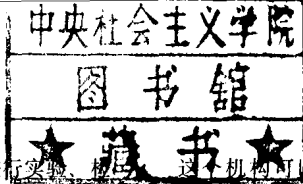 中央社会主义学院
图书馆
★藏书★
行实验、检 这个机构可